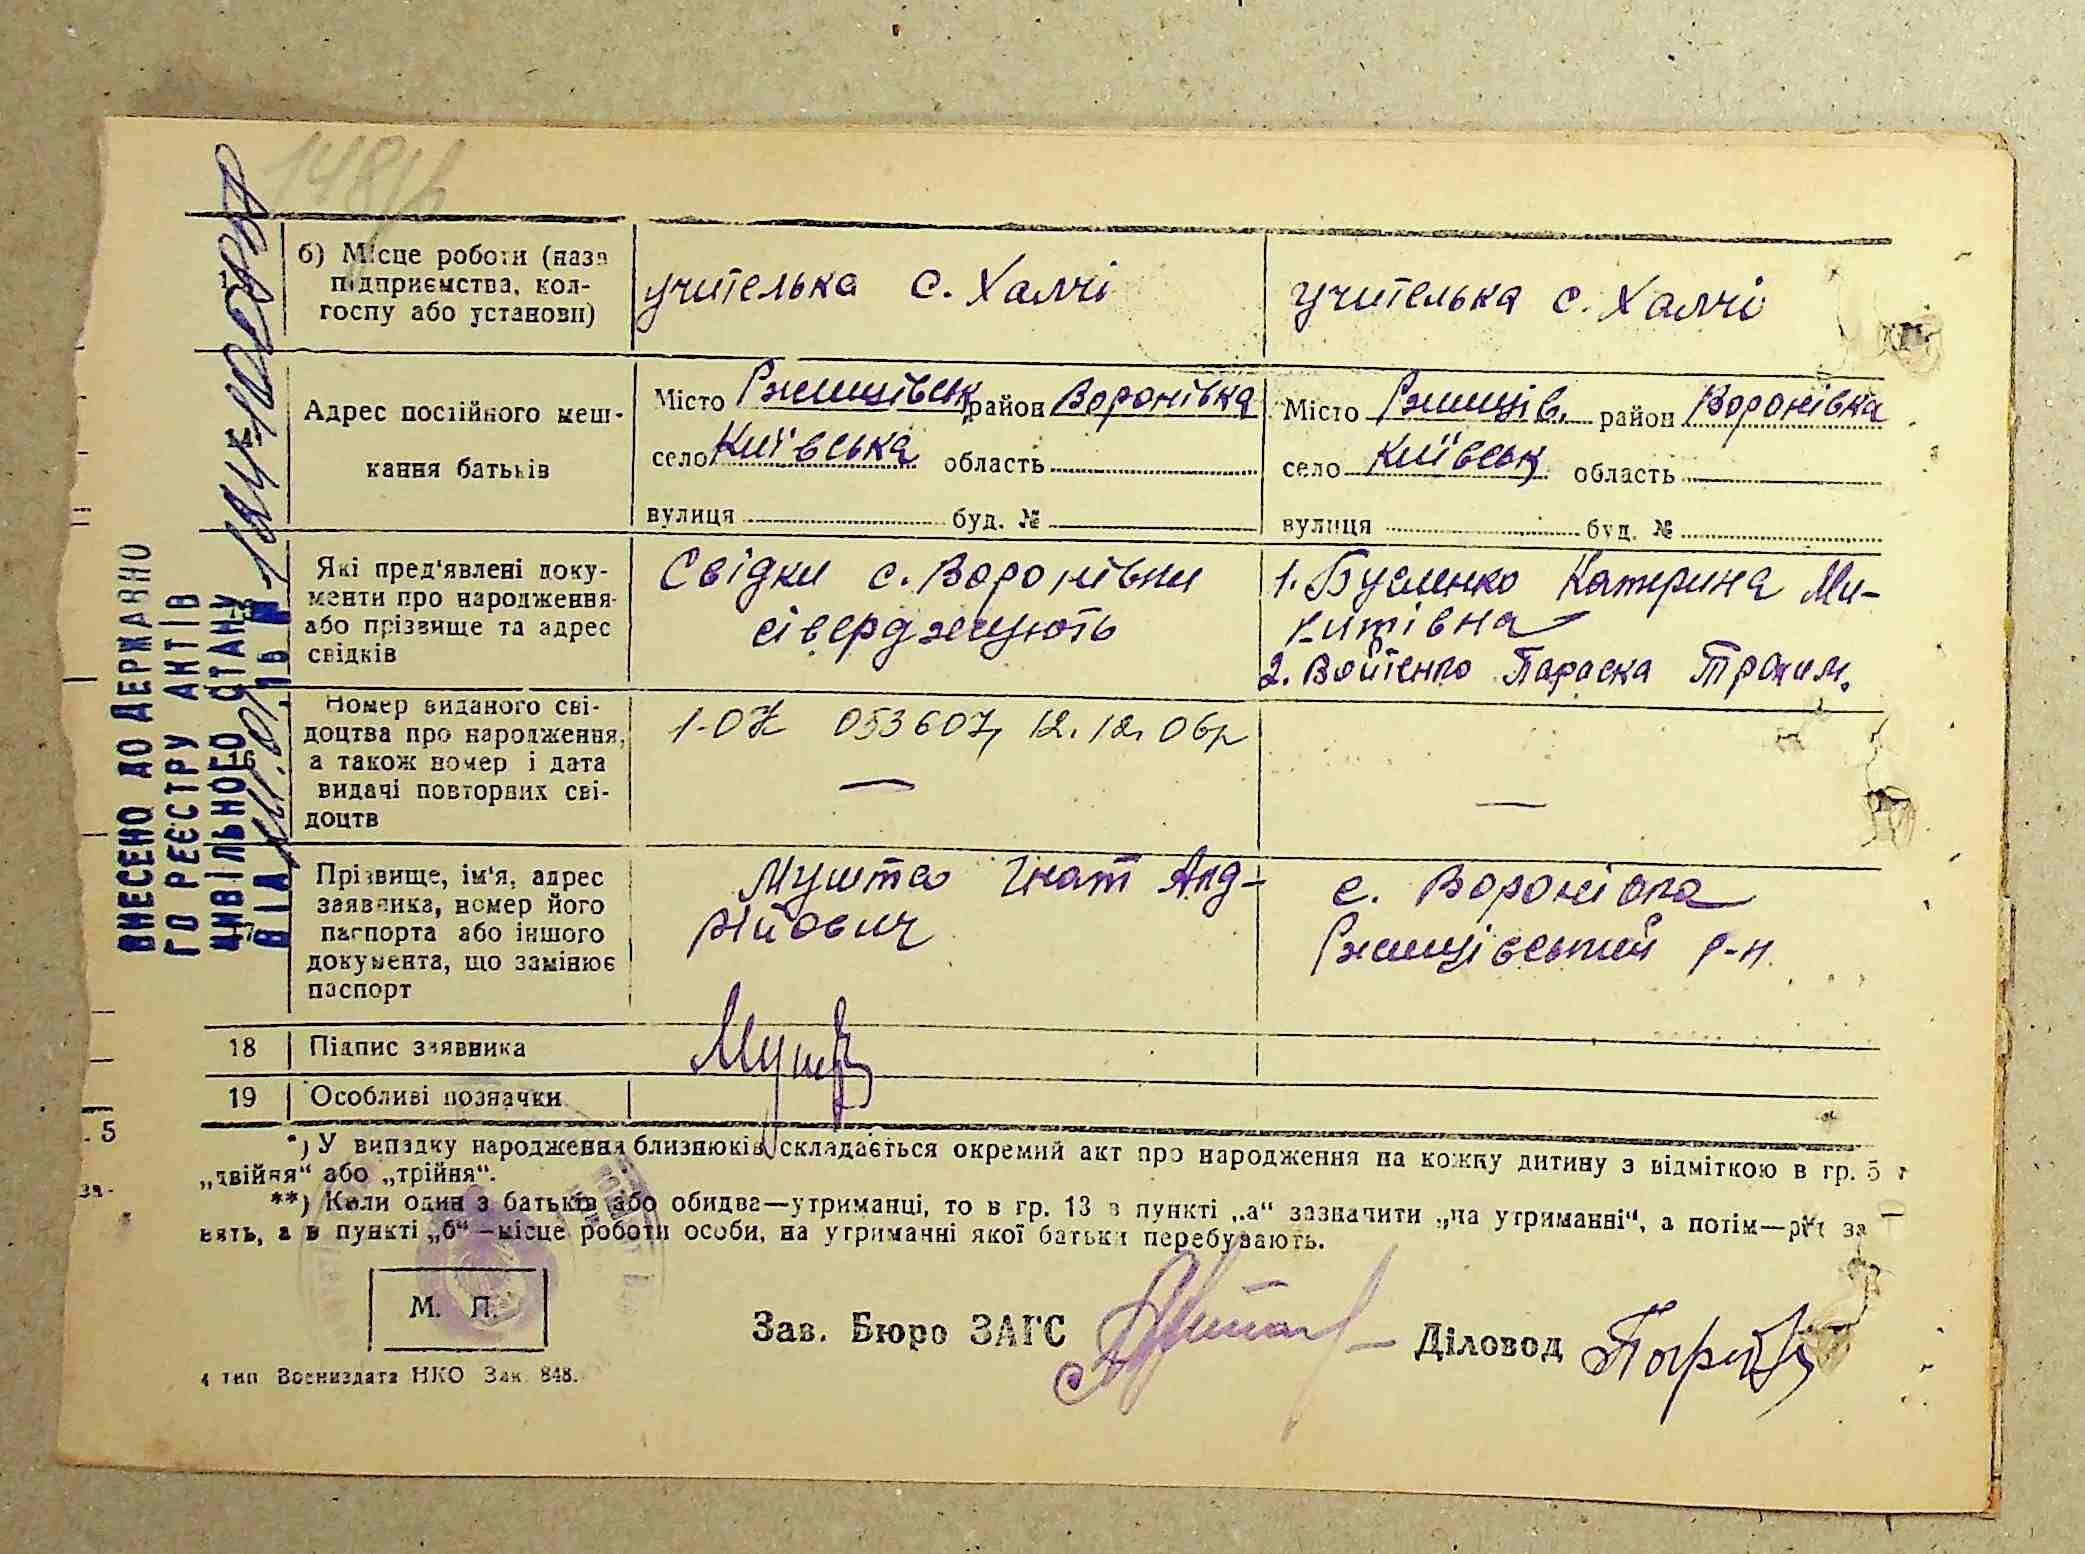 148
б) Місце роботи (назва
підприємства, кол-
госпу або установи)
учителька с. Халчі
учителька с. Халчі
Адрес постійного меш-
кання батьків
Місто Ржищівськ район Воронівка
село Київська область
вулиця буд. №
Місто Ржищів. район Воронівка
село Київськ область
вулиця буд. №
Які пред'явлені доку-
менти про народження
або прізвище та адрес
свідків
Свідки с. Воронівки
сівєрджують
1. Бусленко Катерина Ми-
китівна
2. Войтенко Параска Трохим.
16
Номер виданого сві-
доцтва про народження,
а також номер і дата
видачі повторних сві-
доцтв
053607, 12.12.06р
—
—
Прізвище, ім'я, адрес
заявника, номер його
паспорта або іншого
документа, що замінює
паспорт
Мушта Гнат Анд-
рійович
с. Воронівка
Ржищівський р-н.
18 Підпис заявника
19 Особливі позначки
ВНЕСЕНО ДО ДЕРЖАВНО
ГО РЕЄСТРУ АКТІВ
ЦИВІЛЬНОГО СТАНУ
*) У випадку народження близнюків складається окремий акт про народження на кожну дитину з відміткою в гр. 5
„двійня“ або „трійня“.
**) Коли один з батьків або обидва—утриманці, то в гр. 13 в пункті „а“ зазначити „на утриманні“, а потім—рід за
нять, а в пункті „б“—місце роботи особи, на утриманні якої батьки перебувають.
. 5
за-
М. П.
Зав. Бюро ЗАГС
Діловод
4 тип Воениздата НКО Зак. 848.